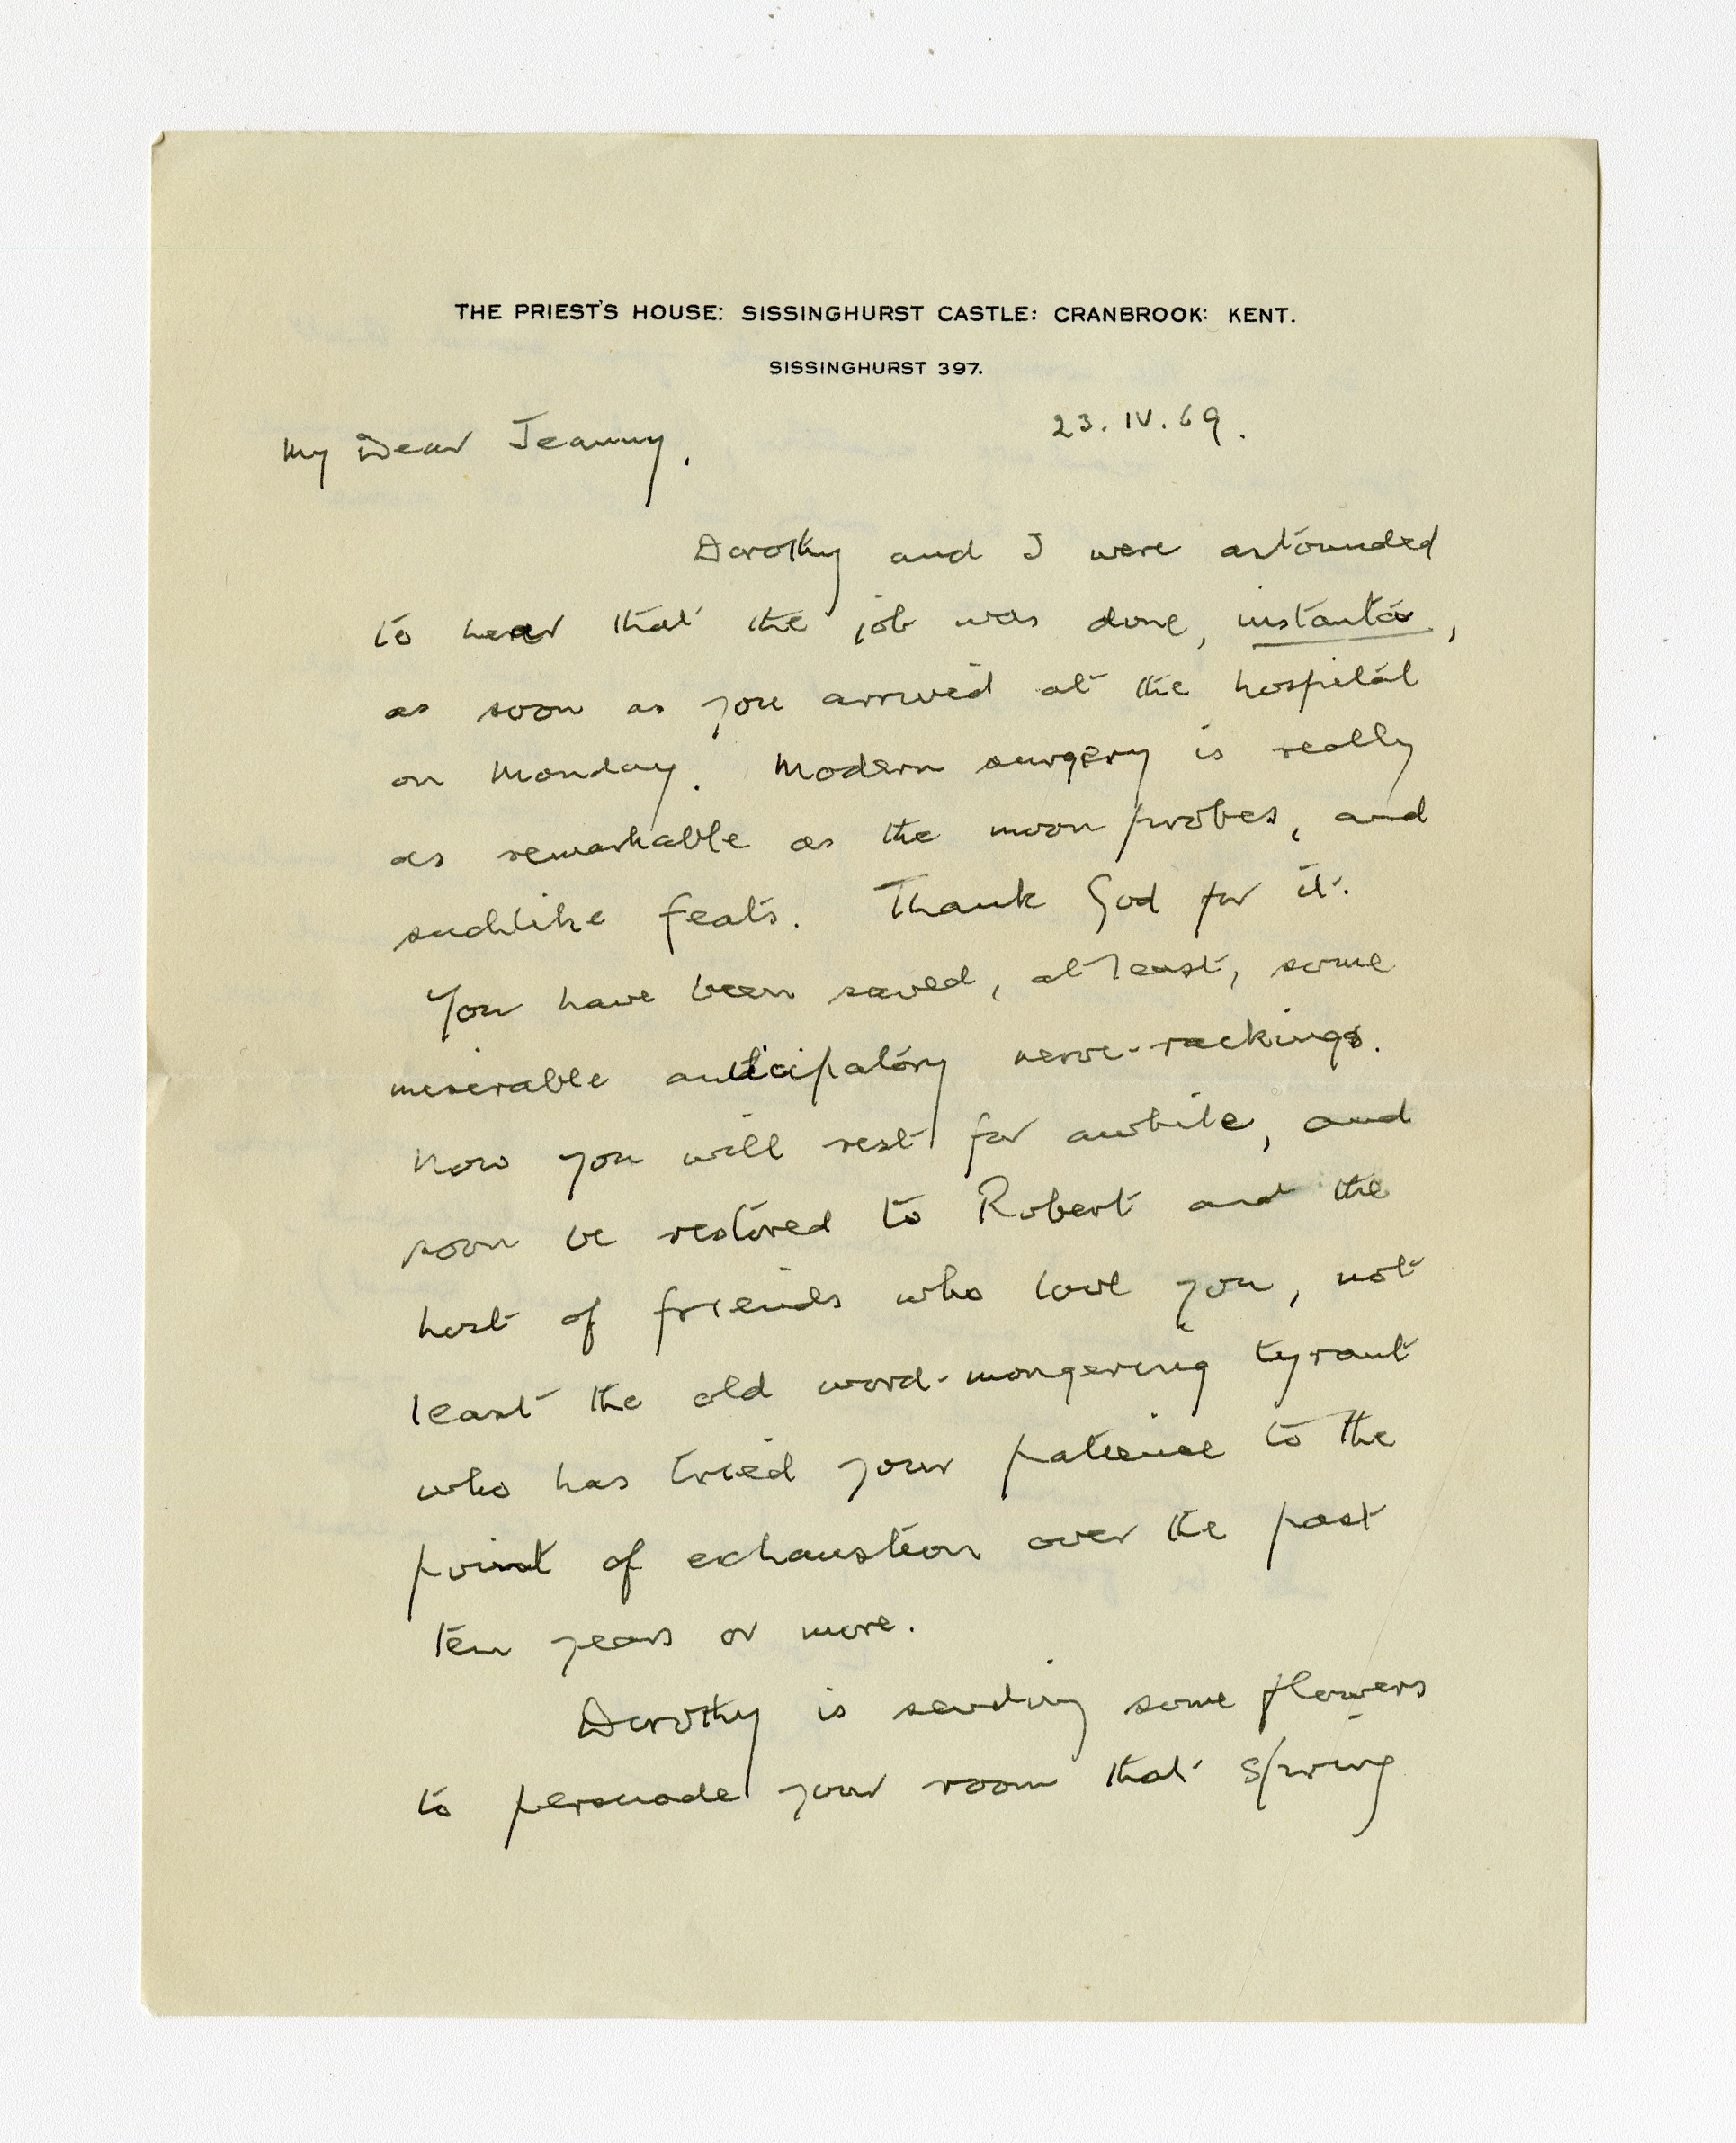 THE PRIEST'S HOUSE: SISSINGHURST CASTLE: CRANBROOK: KENT.
SISSINGHURST 397.
23.IV.69.
My Dear Jeanny.
Dorothy and I were astounded
to hear that the job was done, instanta,
as soon as you arrived at the hospital
on Monday. Modern surgery is really
as remarkable as the moon probes, and
suchlike feats. Thank God for it.
You have been saved, at least, some
miserable anticipatory nerve-rackings.
Now you will rest for awhile, and
soon be restored to Robert and the
host of friends who love you, not
least the old word-mongering tyrant
who has tried your patience to the
point of exhaustion over the past
ten years or more.
Dorothy is sending some flowers
to persuade your room that Spring